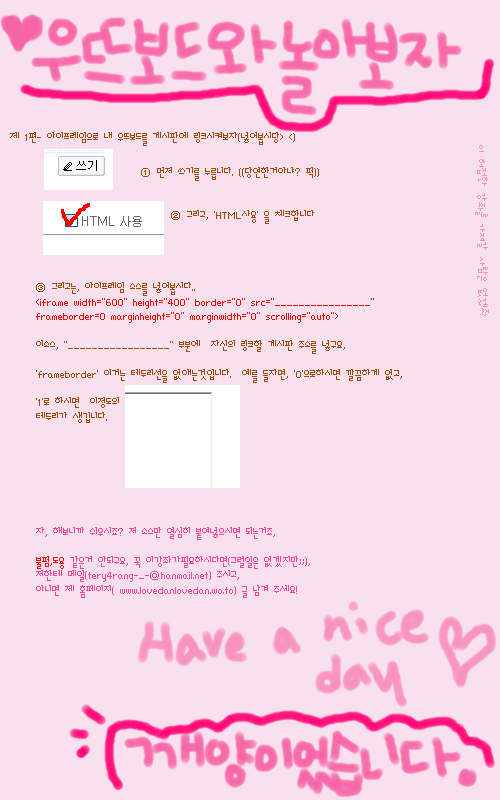 ♥우뜨보드와놀아보자
제 1편- 아이프레임으로 내 우뜨보드를 게시판에 링크시켜보자(넣어봅시당> <)
쓰기
① 먼저 쓰기를 누릅니다. ((당연한거아냐? 퍽))
HTML 사용
② 그리고, 'HTML사용' 을 체크합니다
③ 그리고는, 아이프레임 소스를 넣어봅시다..
<iframe width="600" height="400" border="0" src="________________"
frameborder=0 marginheight="0" marginwidth="0" scrolling="auto">
이소스, "_________________" 부분에 자신의 링크할 게시판 주소를 넣고요,
'frameborder' 이거는 테두리선을 없애는것입니다. 예를 들자면, '0'으로하시면 깔끔하게 없고,
'1'로 하시면 이정도의
테두리가 생깁니다.
자, 해보니까 쉬우시죠? 저 소스만 열심히 붙여넣으시면 되는거죠,
불펌,도용 같은건 안되고요, 꼭 이강좌가필요하시다면(그럴일은 없겠지만;;),
저한테 메일(tery4rang-_-@hanmail.net) 주시고,
아니면 제 홈페이지( www.lovedanlovedan.wo.to) 글 남겨 주세요!
Have a nice
day
깨양이었습니다.